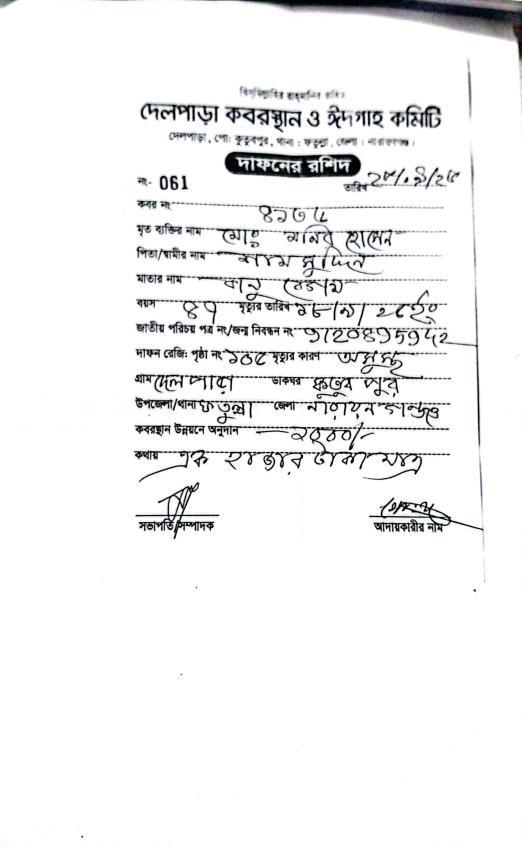 বিস্‌মিল্লাহির রাহ্‌মানির রাহিম
দেলপাড়া কবরস্থান ও ঈদগাহ কমিটি
দেলপাড়া, পো: কুতুবপুর, থানা : ফতুল্লা, জেলা : নারায়ণগঞ্জ।
দাফনের রশিদ
নং- 061
তারিখ
কবর নং
মৃত ব্যক্তির নাম মোঃ মনির হোসেন
পিতা/স্বামীর নাম শামসুদ্দিন
মাতার নাম বানু বেগম
বয়স ৪৭ মৃত্যুর তারিখ
জাতীয় পরিচয় পত্র নং/জন্ম নিবন্ধন নং
দাফন রেজি: পৃষ্ঠা নং মৃত্যুর কারণ অসুস্থ
গ্রাম দেলপাড়া ডাকঘর কুতুবপুর
উপজেলা/থানা ফতুল্লা জেলা নারায়নগঞ্জ
কবরস্থান উন্নয়নে অনুদান
কথায় এক হাজার টাকা মাত্র
সভাপতি/সম্পাদক
আদায়কারীর নাম